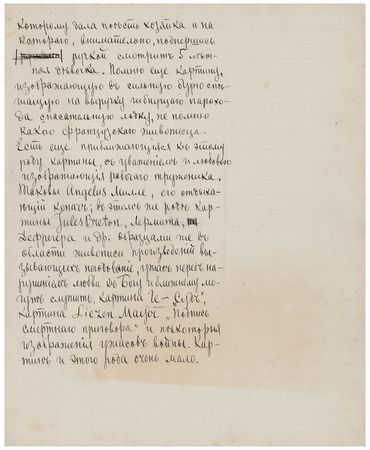 которому дала поѣсть хозяйка и на
котораго, внимательно, подпершись
ручкой смотритъ 5 лѣт-
няя дѣвочка. Помню еще картину,
изображающую въ сильную бурю спѣ-
шащую на выручку гибнущаго парохо-
да спасательную лодку, не помню
какого французскаго живописца.
Есть еще приближающіяся къ этому
роду картины, съ уваженіемъ и любовью
изображающія рабочаго труженика.
Таковы Angelus Милле, его отдыха-
ющій копачъ; въ этомъ же родѣ кар-
тины Jules Breton, Лермита,
Дефрегера и др. Образцами же въ
области живописи произведеній вы-
зывающихъ негодованіе, ужасъ передъ на-
рушеніемъ любви къ Богу и ближнему мо-
гутъ служить картина Ге – „Судъ",
картина Liezen Mayer „Подпись
смертнаго приговора" и нѣкоторыя
изображенія ужасовъ войны. Кар-
тинъ и этого рода очень мало.